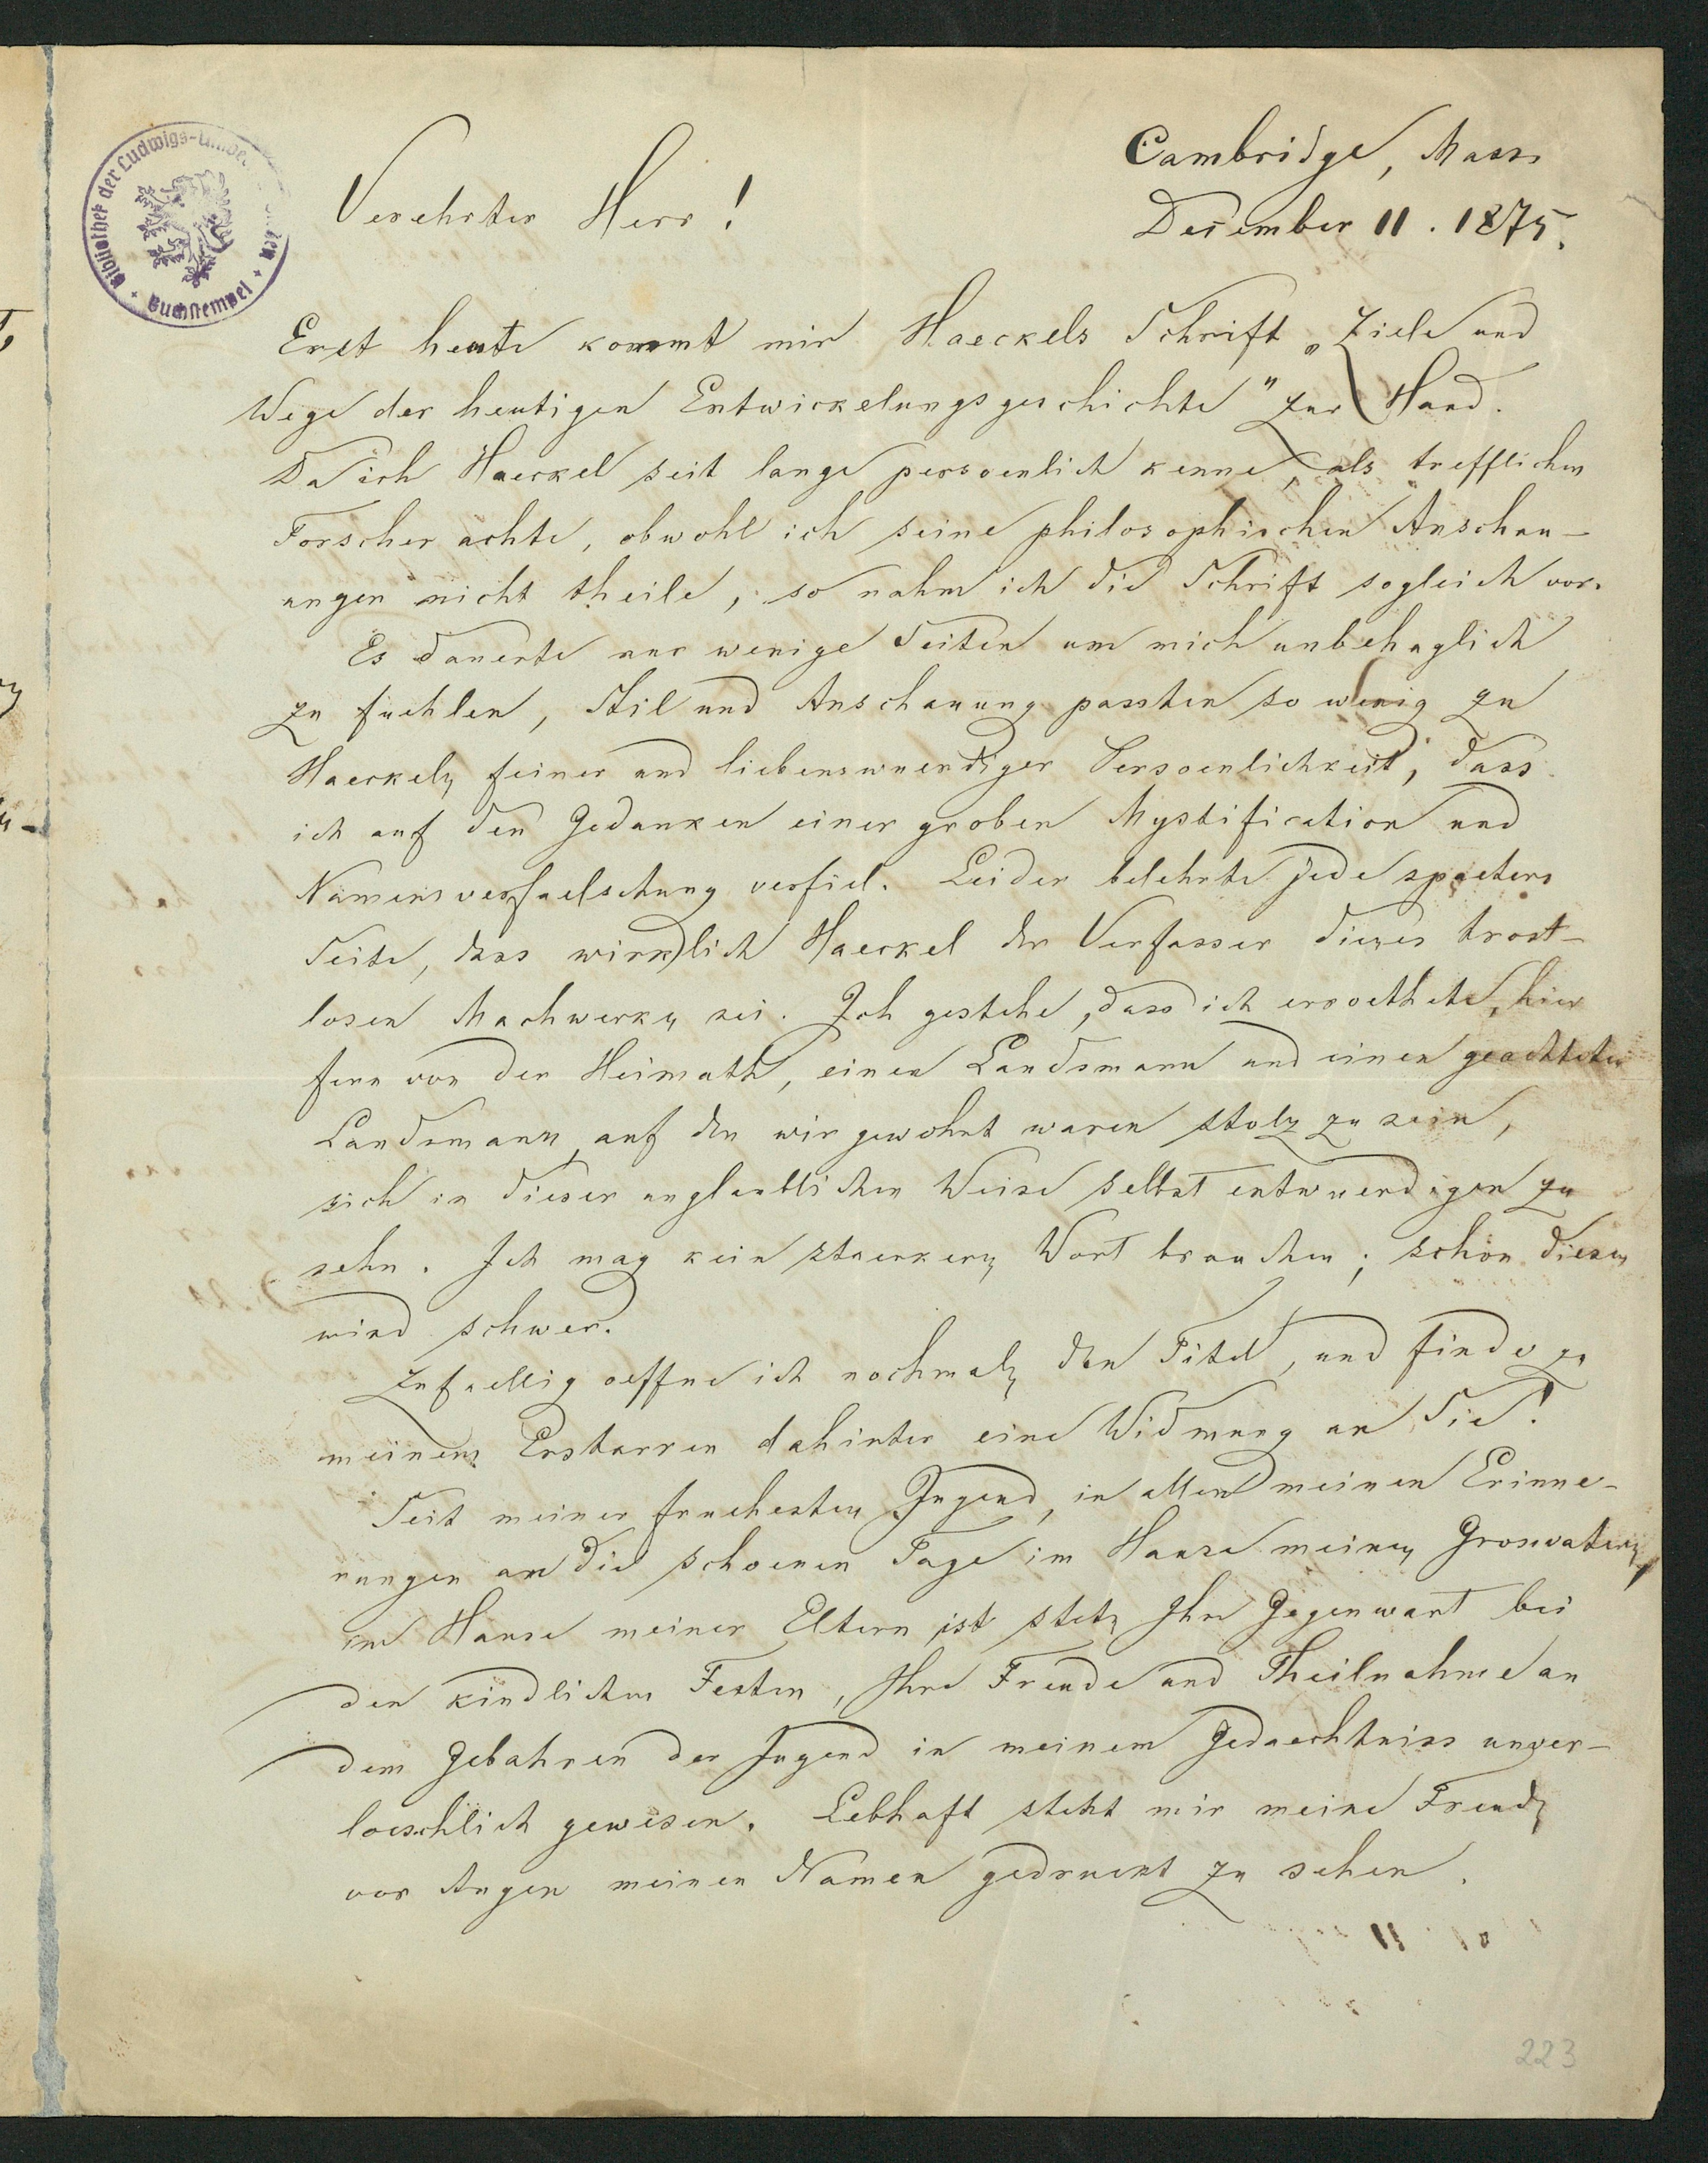 Cambridge, Mass
December 11. 1875.
Verehrter Herr!
Erst heute kommt mir Haeckels Schrift „Ziele und
Wege der heutigen Entwickelungsgeschichte" zur Hand.
Da ich Haeckel seit lange persoenlich kenne, als trefflichen
Forscher achte, obwohl ich seine philosophischen Anschau-
ungen nicht theile, so nahm ich die Schrift sogleich vor.
Es dauerte nur wenige Seiten um mich unbehaglich
zu fuehlen, Stil und Anschauung passten so wenig zu
Haeckels feiner und liebenswuerdiger Persoenlichkeit, dass
ich auf den Gedanken einer groben Mystification und
Namensverfaelschung verfiel. Leider belehrte jede spaetere
Seite, dass wirklich Haeckel der Verfasser dieses trost-
losen Machwerks sei. Ich gestehe, dass ich erroethete, hier
fern von der Heimath, einen Landsmann und einen geachteten
Landsmann, auf den wir gewohnt waren stolz zu sein,
sich in dieser unglaublichen Weise selbst entwuerdigen zu
sehn. Ich mag kein staerkers Wort brauchen; schon dieses
wird schwer.
Zufaellig oeffne ich nochmals den Titel, und finde zu
meinem Erstarren dahinter eine Widmung an Sie!
Seit meiner fruehesten Jugend, in allen meinen Erinne-
rungen an die schoenen Tage im Hause meines Grosvaters,
im Hause meiner Eltern ist stets Ihre Gegenwart bei
den kindlichen Festen, Ihre Freude und Theilnahme an
dem Gebahren der Jugend in meinem Gedaechtniss unver-
loeschlich gewesen. Lebhaft steht mir meine Freude
vor Augen meinen Namen gedruckt zu sehen.
223
Bibliothek der Ludwigs-
Buchstempel